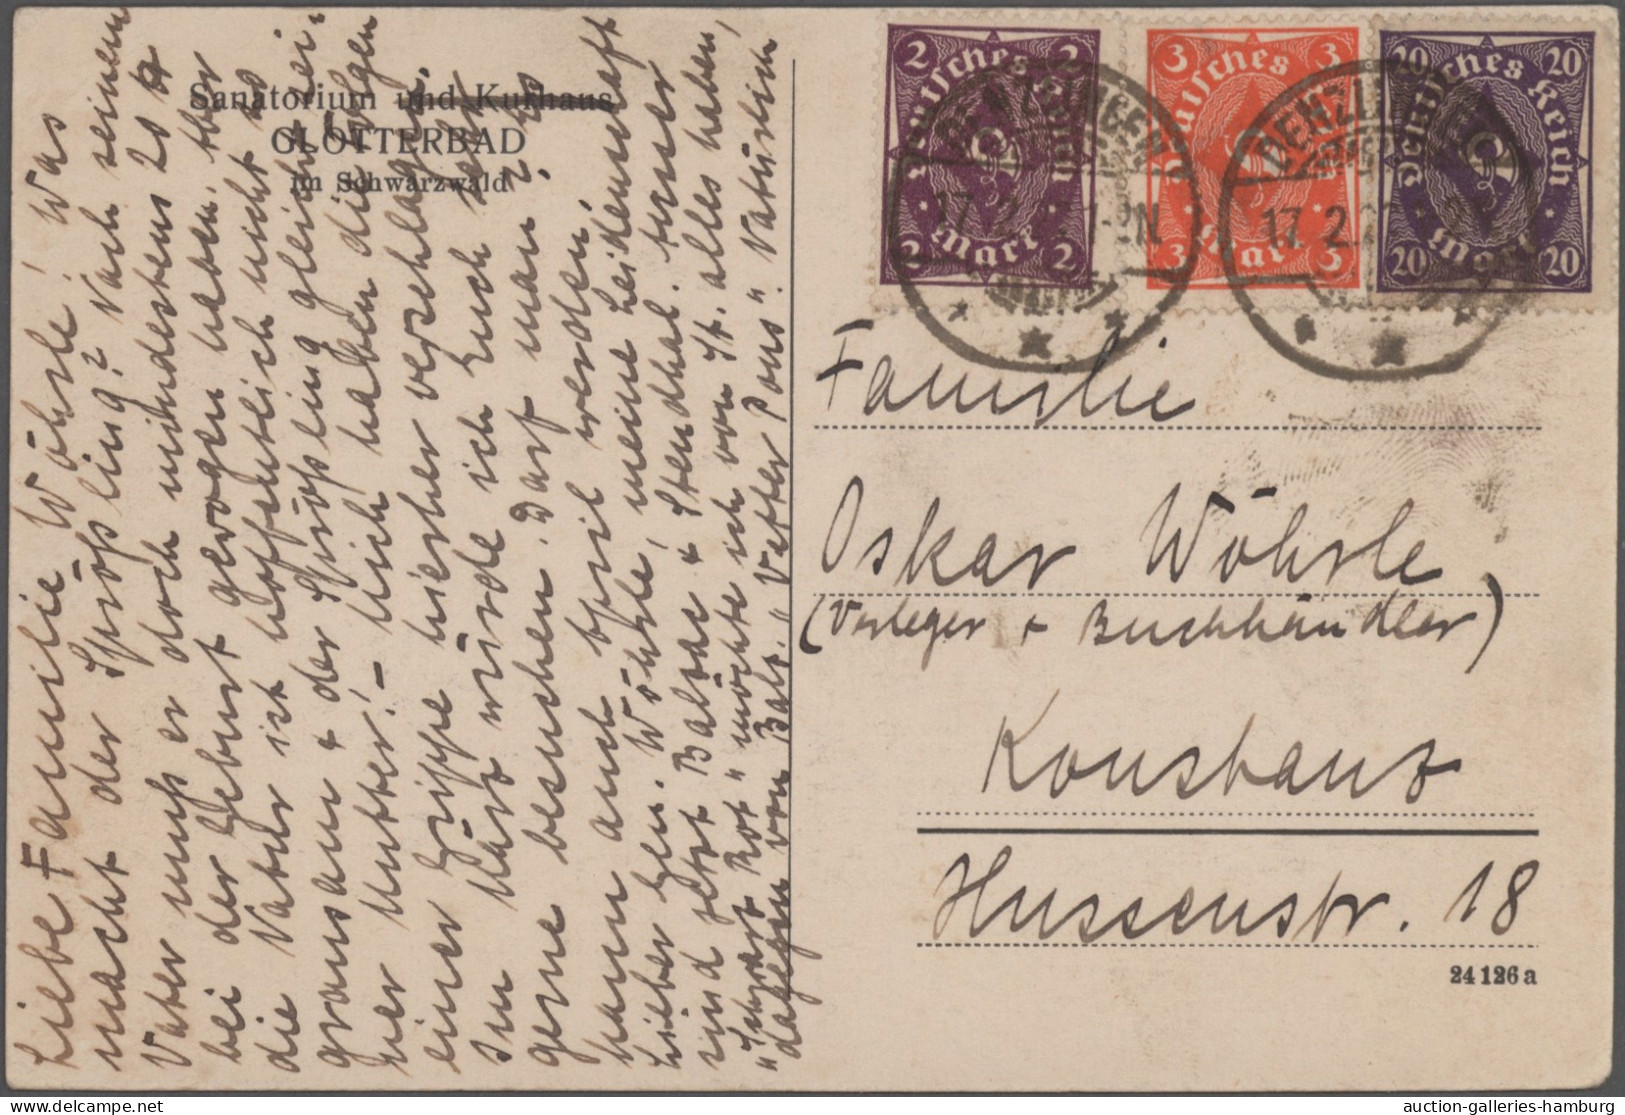 Sanatorium und Kurhaus
GLOTTERBAD
im Schwarzwald
Liebe Familie Wöhrle! Was
macht der Sprößling? Nach seinem
Vater muß er doch mindestens 20 ℔
bei der Geburt gewogen haben. Aber
die Natur ist hoffentlich nicht so
grausam & der Sprößling gleicht sei-
ner Mutter! – Mich haben die Folgen
einer Grippe hierher verschlagen.
Im März würde ich Euch sehr
gerne besuchen. Darf man? Es
kann auch April werden.
Lieber Hen. Wöhrle, meine Leidenschaft
sind jetzt Balzac & Stendhal. Ferner
"Schwarz Rot" möchte ich von St. alles haben,
dagegen von Balz. "Vetter Pons". Natürlich
2 2
Deutsches Reich
2 Mark 2
3 3
Deutsches Reich
3 Mark 3
20 20
Deutsches Reich
20 Mark 20
DENZLINGEN
17.2. 1-2N
DENZLINGEN
17.2.2
Familie
Oskar Wöhrle
(Verleger & Buchhändler)
Konstanz
Hussenstr. 18
24126a
auction-galleries-hamburg